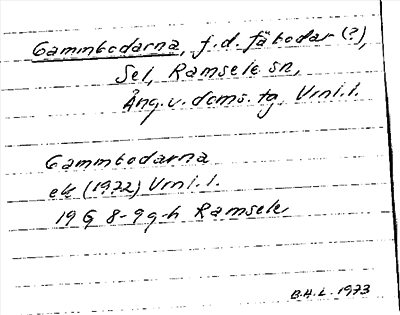 Gammbodarna, f.d. fäbodar (?),
Sel, Ramsele sn,
Ång.v. doms. tg, Vrnl.l.
Gammbodarna
ek (1922) Vrnl.l.
19 G 8-9 g-h Ramsele
B.H.L. 1973